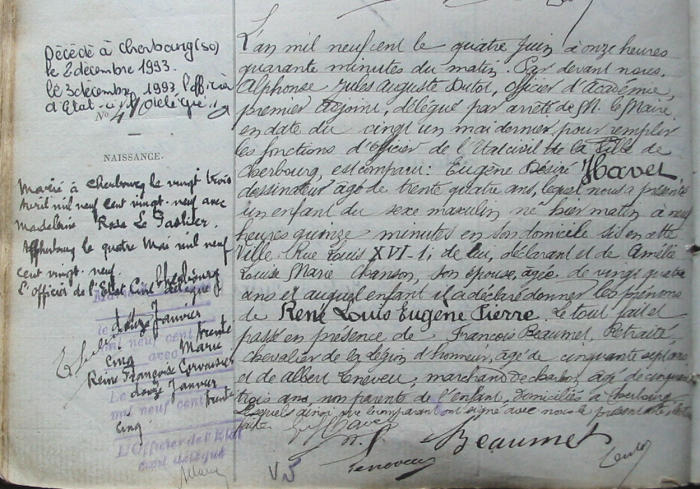 Décédé à Cherbourg (50)
le 2 décembre 1993.
le 3 décembre 1993, l'officier
d'Etat-civil Délégué,
No 4
NAISSANCE.
Marié à Cherbourg le vingt trois
Avril mil neuf cent vingt-neuf avec
Madeleine Rose Le
A Cherbourg le quatre Mai mil neuf
cent vingt-neuf.
L'officier de l'Etat Civil délégué
Cherbourg
le
douze Janvier
mil neuf cent
trente
cinq
avec
Marie
Reine Françoise
Le
douze Janvier
mil neuf cent
trente
cinq
L'Officier de l'Etat
civil délégué
L'an mil neuf cent le quatre Juin à onze heures
quarante minutes du matin. Par devant nous,
Alphonse Jules Auguste Dutot, officier d'Académie,
premier Adjoint, délégué par arrêté de M. le Maire,
en date du vingt un mai dernier, pour remplir
les fonctions d'officier de l'Etat civil de la Ville de
Cherbourg, est comparu: Eugène Désiré Havet,
dessinateur âgé de trente quatre ans, lequel nous a présenté
un enfant du sexe masculin né hier matin à neuf
heures quinze minutes en son domicile sis en cette
ville, Rue Louis XVI-1; de lui, déclarant et de Amélie
Louise Marie Chanson, son épouse, âgée de vingt quatre
ans et auquel enfant il a déclaré donner les prénoms
de René Louis Eugène Pierre. Le tout fait et
passé en présence de François Beaumet, Retraité,
chevalier de la légion d'honneur, âgé de cinquante sept ans
et de Albert Leneveu, marchand de charbon, âgé de cinquante
trois ans, non parents de l'enfant, domiciliés à Cherbourg
Lesquels ainsi que le comparant ont signé avec nous le présent acte, lecture
faite
E. Havet
Beaumet
Leneveu
V5